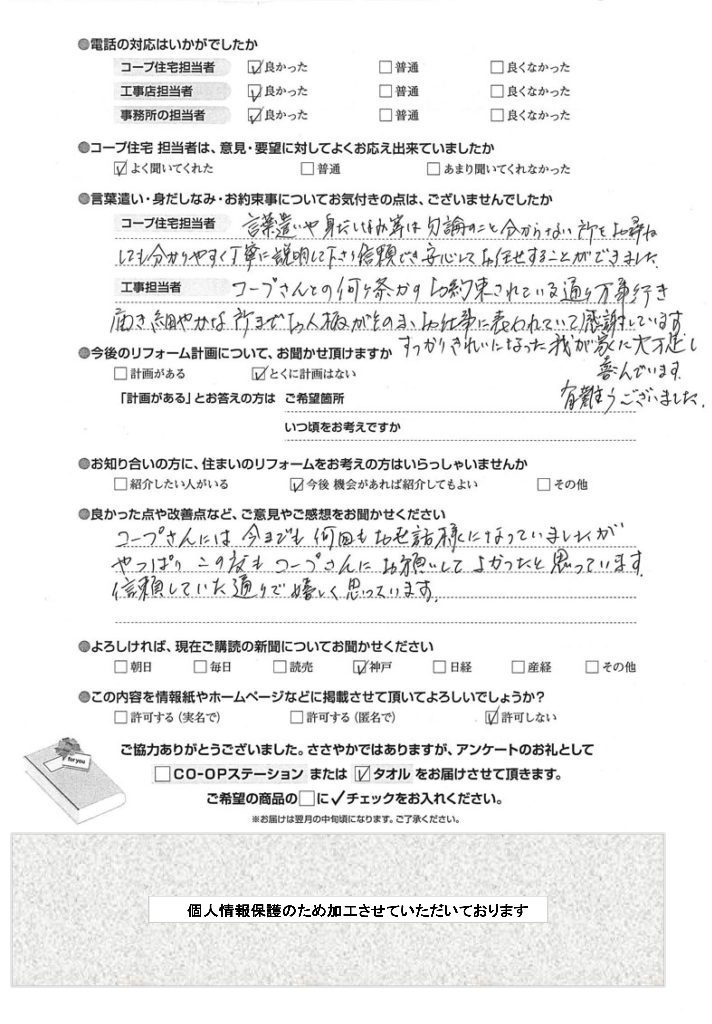 ●電話の対応はいかがでしたか
コープ住宅担当者 ☑良かった □普通 □良くなかった
工事店担当者 ☑良かった □普通 □良くなかった
事務所の担当者 ☑良かった □普通 □良くなかった
●コープ住宅 担当者は、意見・要望に対してよくお応え出来ていましたか
☑よく聞いてくれた □普通 □あまり聞いてくれなかった
●言葉遣い・身だしなみ・お約束事についてお気付きの点は、ございませんでしたか
コープ住宅担当者 言葉遣いや身だしなみ等は勿論のこと分からない所をお尋ね
しても分かりやすく丁寧に説明して下さり信頼でき安心してお任せすることができました。
工事担当者 コープさんとの何ヶ条かのお約束されている通り万事行き
届き細やかな所までお人板がそのままお仕事に表われていて感謝しています
すっかりきれいになった我が家に大満足し
喜んでいます。
有難うございました。
●今後のリフォーム計画について、お聞かせ頂けますか
□計画がある ☑とくに計画はない
「計画がある」とお答えの方は ご希望箇所
いつ頃をお考えですか
●お知り合いの方に、住まいのリフォームをお考えの方はいらっしゃいませんか
□紹介したい人がいる ☑今後 機会があれば紹介してもよい □その他
●良かった点や改善点など、ご意見やご感想をお聞かせください
コープさんには今までも何回もお世話様になっていましたが
やっぱりこの度もコープさんにお願いしてよかったと思っています。
信頼していた通りで嬉しく思っています。
●よろしければ、現在ご購読の新聞についてお聞かせください
□朝日 □毎日 □読売 ☑神戸 □日経 □産経 □その他
●この内容を情報紙やホームページなどに掲載させて頂いてよろしいでしょうか?
□許可する(実名で) □許可する(匿名で) ☑許可しない
for you
ご協力ありがとうございました。ささやかではありますが、アンケートのお礼として
□CO-OPステーション または ☑タオル をお届けさせて頂きます。
ご希望の商品の□に✓チェックをお入れください。
※お届けは翌月の中旬頃になります。ご了承ください。
個人情報保護のため加工させていただいております